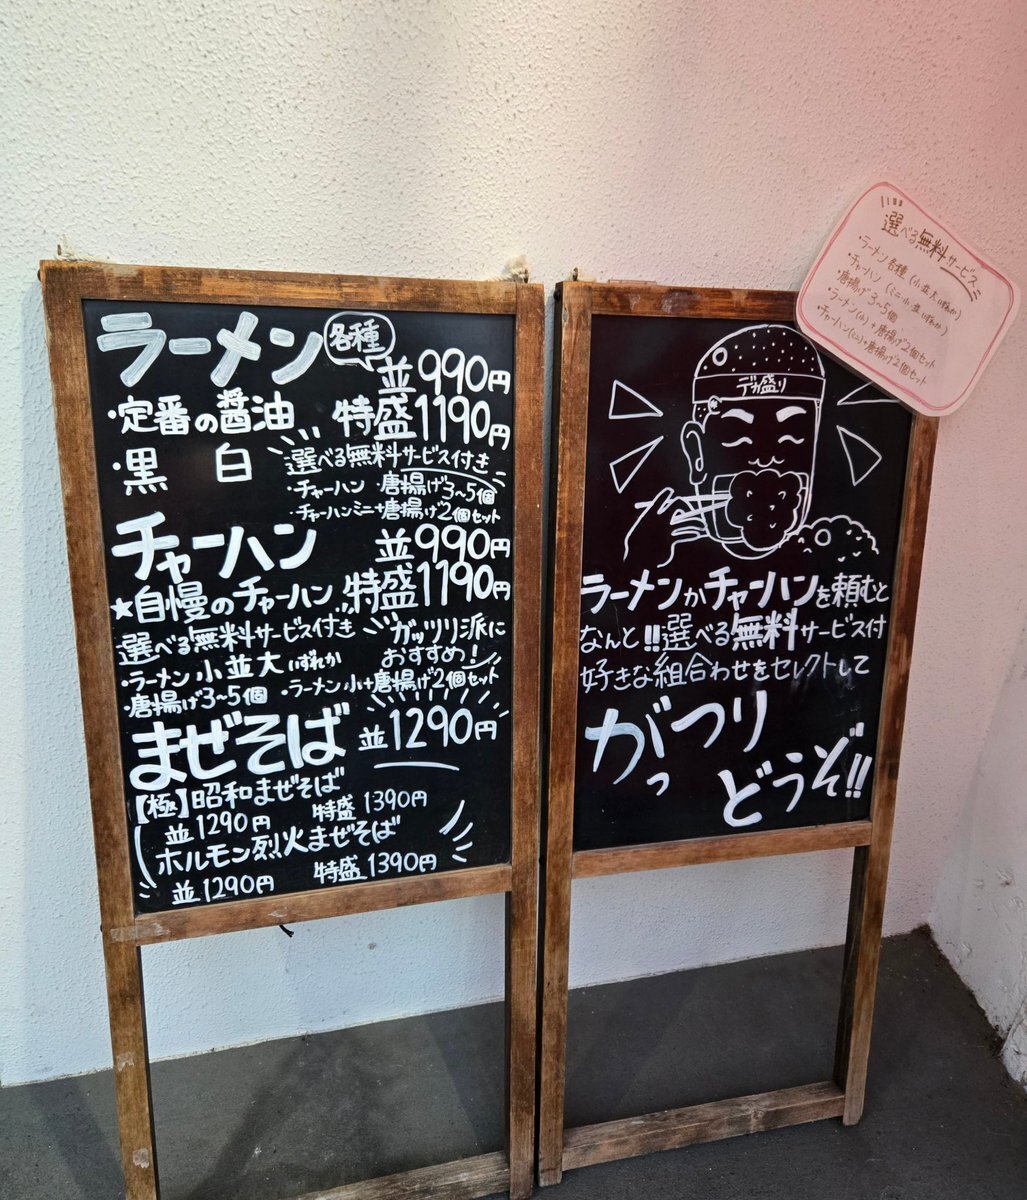 ラーメン 各種
並 990円
・定番の醤油 特盛 1190円
・黒 白
選べる無料サービス付き
・チャーハン ・唐揚げ3~5個
・チャーハンミニ+唐揚げ2個セット
チャーハン 並 990円
★自慢のチャーハン 特盛 1190円
選べる無料サービス付き
ガッツリ派に
おすすめ!
・ラーメン小並大いずれか
・唐揚げ3~5個 ・ラーメン小+唐揚げ2個セット
まぜそば 並 1290円
【極】昭和まぜそば
並1290円 特盛1390円
ホルモン烈火まぜそば
並1290円 特盛1390円
デカ盛り
ラーメンかチャーハンを頼むと
なんと!!選べる無料サービス付
好きな組合わせをセレクトして
がっつり
どうぞ!!
選べる無料サービス
・ラーメン各種(小並大いずれか)
・チャーハン(ミニ小並いずれか)
・唐揚げ3~5個
・ラーメン(小)+唐揚げ2個セット
・チャーハン(ミニ)+唐揚げ2個セット